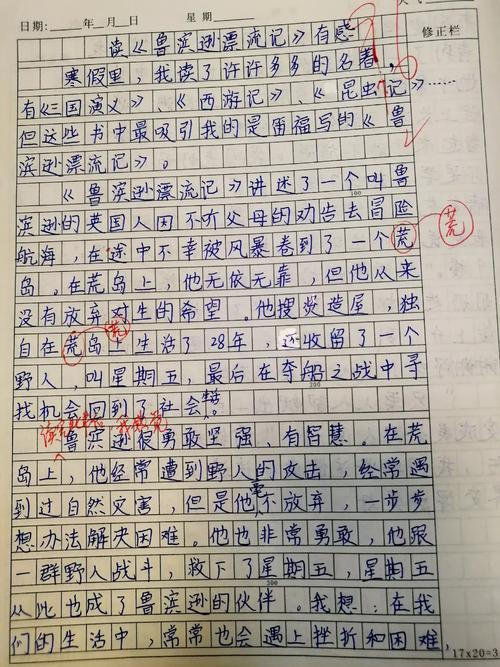 日期: 年 月 日 星期
修正栏
读《鲁滨逊漂流记》有感
寒假里，我读了许许多多的名著，
有《三国演义》、《西游记》、《昆虫记》……
但这些书中最吸引我的是笛福写的《鲁
滨逊漂流记》。
《鲁滨逊漂流记》讲述了一个叫鲁
100
滨逊的英国人因不听父母的劝告去冒险
航海，在途中不幸被风暴卷到了一个荒 荒
岛。在荒岛上，他无依无靠，但他从来
没有放弃对生的希望。他搜炎造屋，独
荒
自在荒岛上生活了28年，还收留了一个
野人，叫星期五，最后在夺船之战中寻
200
找机会回到了社会
鲁滨逊很勇敢坚强、有智慧。在荒
岛上，他经常遭到野人的攻击，经常遇
到过自然灾害，但是他毫不放弃，一步步
想办法解决困难。他也非常勇敢，他跟
一群野人战斗，救下了星期五，星期五
300
从此也成了鲁滨逊的伙伴。我想：在我
们的生活中，常常也会遇上挫折和困难，
17×20=3